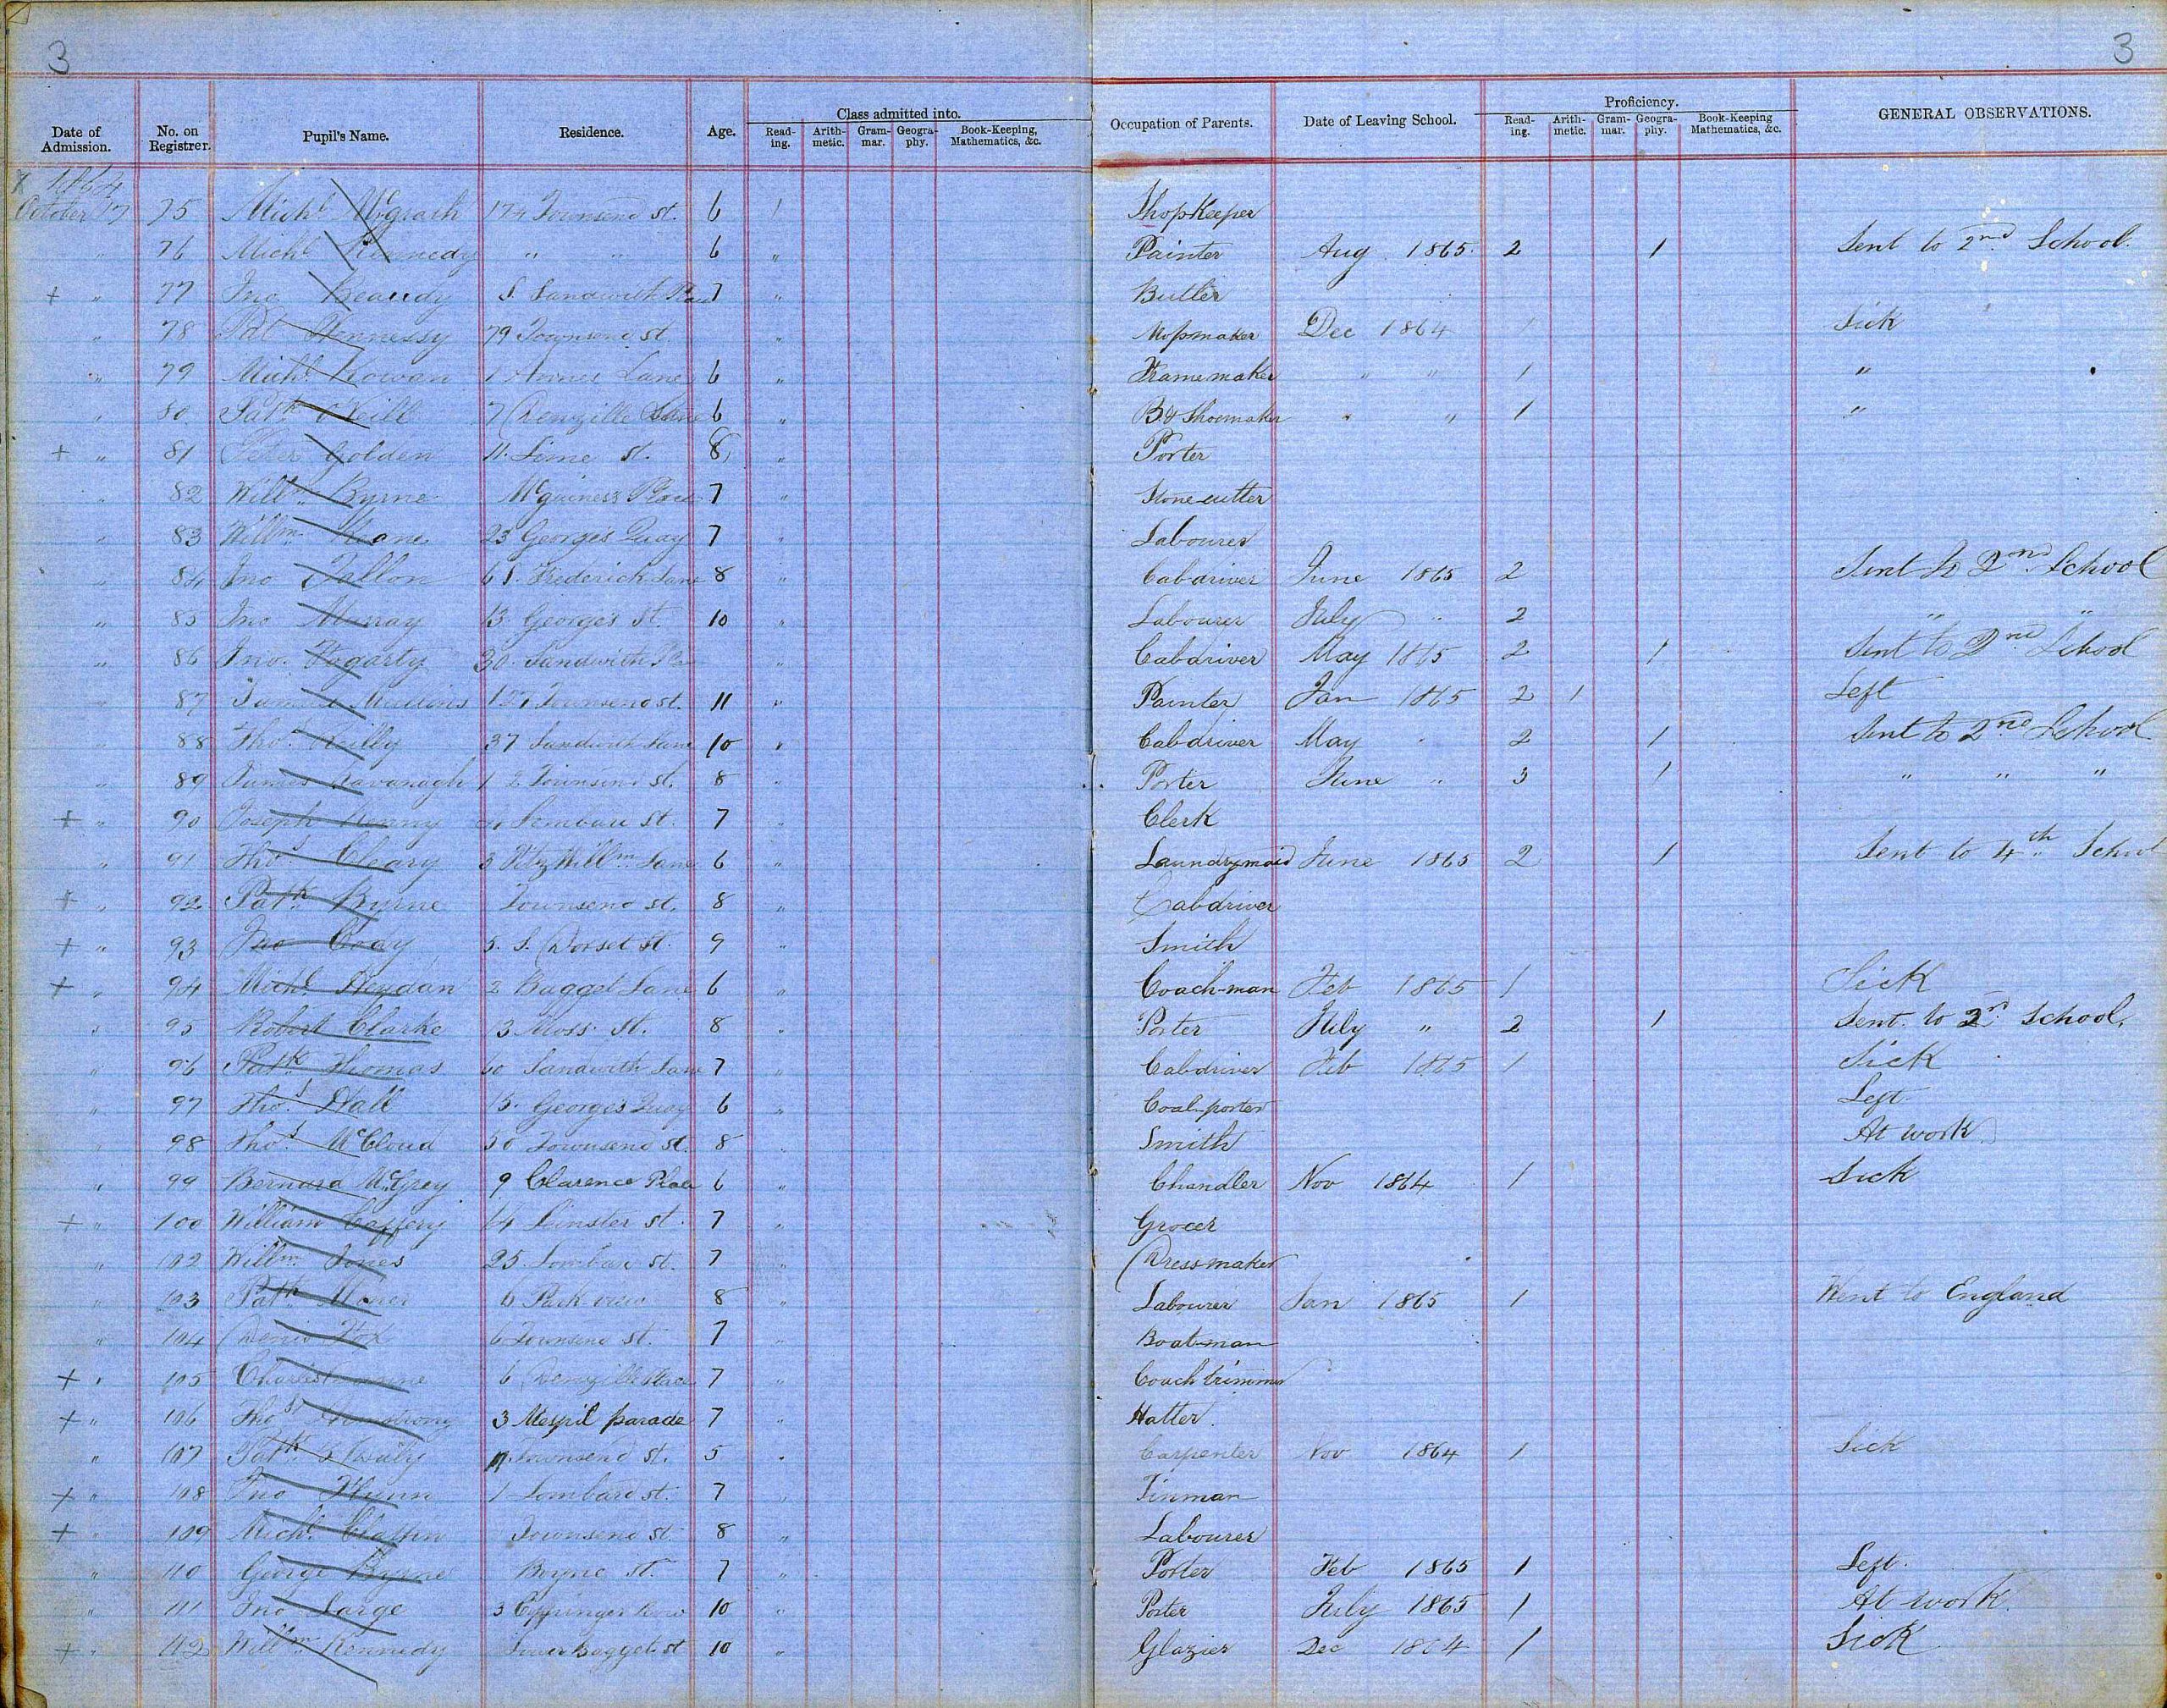 3 3
Date of Admission. No. on Registrer. Pupil's Name. Residence. Age. Class admitted into. Read-ing. Arith-metic. Gram-mar. Geogra-phy. Book-Keeping, Mathematics, &c. Occupation of Parents. Date of Leaving School. Proficiency. Read-ing. Arith-metic. Gram-mar. Geogra-phy. Book-Keeping Mathematics, &c. GENERAL OBSERVATIONS.
1864
October 17 75 Michl McGrath 174 Townsend st. 6 1 Shopkeeper
" 76 Michl Kennedy " " 6 " Painter Aug 1865 2 1 Sent to 2nd School.
+ " 77 Jno 5. Sandwith 7 " Butler
" 78 Pat Hennessy 79 Townsend st " Mopmaker Dec 1864 1 Sick
" 79 Michl Rowan 1 Annes Lane 6 " Framemaker " " 1 "
" 80 Patk O'Neill 7 Denzille Lane 6 " B & Shoemaker " " 1 "
+ " 81 Peter Golden 11. Lime st. 8 " Porter
" 82 Willm Byrne McGuiness Place 7 " Stone-cutter
" 83 Willm Keane 23 Georges Quay 7 " Labourer
" 84 Jno Fallon 6 S. Frederick Lane 8 " Cabdriver June 1865 2 Sent to 2nd School
" 85 Jno Murray 13 Georges St. 10 " Labourer July " 2 " "
" 86 Jno. Fogarty 30. Sandwith " Cabdriver May 1865 2 1 Sent to 2nd School
" 87 James Mullens 127 Townsend st. 11 " Painter Jan 1865 2 1 Left
" 88 Thos Reilly 37 Sandwith Lane 10 " Cabdriver May " 2 1 Sent to 2nd School
" 89 James Kavanagh Townsend st. 8 " Porter June " 3 1 " " "
+ " 90 Joseph Kenny Lombard st. 7 " Clerk
" 91 Thos Cleary 3 Fitz Willm Lane 6 " Laundrymaid June 1865 2 1 Sent to 4th School
+ " 92 Patk Byrne Townsend st. 8 " Cabdriver
+ " 93 Jno Cody 5. S. Dorset st. 9 " Smith
+ " 94 Michl Heydan 2 Bagget Lane 6 " Coach-man Feb 1865 1 Sick
" 95 Robert Clarke 3 Moss st. 8 " Porter July " 2 1 Sent to 2nd School.
" 96 Patk Thomas 60 Sandwith Lane 7 " Cabdriver Feb 1865 1 Sick
" 97 Thos Hall 15. Georges Quay 6 " Coal-porter Left
" 98 Thos McCloud 50 Townsend st. 8 " Smith At work
" 99 Bernard McGrey 9 Clarence Place 6 " Chandler Nov 1864 1 Sick
+ " 100 William Caffery 14 Linster st. 7 " Grocer
" 102 Willm Jones 25 Lombard st. 7 " Dressmaker
" 103 Patk 6 Park view 8 " Labourer Jan 1865 1 Went to England
" 104 Denis Fox 6 Townsend st. 7 " Boatman
+ " 105 Charles 6 Denzille Place 7 " Coach trimmer
+ " 106 Thos Armstrong 3 Mespil parade 7 " Hatter
" 107 Patk Townsend st. 5 " Carpenter Nov 1864 1 Sick
+ " 108 Jno 1 Lombard st. 7 " Tinman
+ " 109 Michl Claffin Townsend st. 8 " Labourer
" 110 George Byrne Boyne st. 7 " Porter Feb 1865 1 Left.
" 111 Jno Large 3 10 " Porter July 1865 1 At work.
+ " 112 Willm Kennedy Lower Bagget st 10 " Glazier Dec 1864 1 Sick